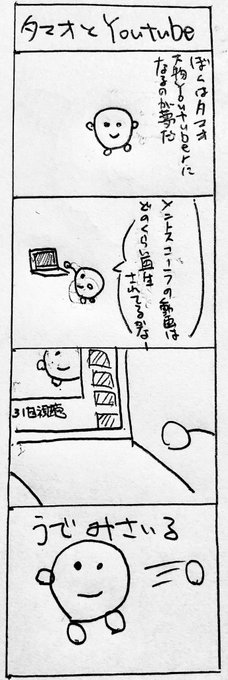 タマオとYoutube
ぼくはタマオ
大物Youtuberに
なるのが夢だ
メントスコーラの動画は
どのくらい再生
されてるかなー
31回視聴
うでみさいる